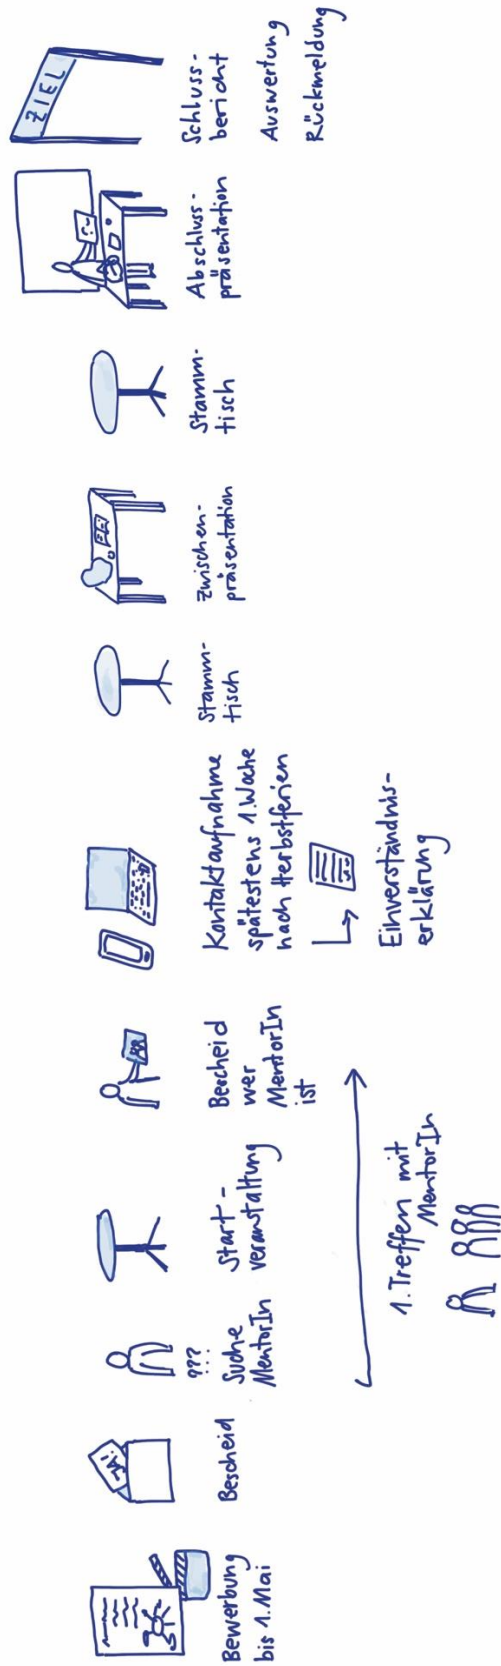 Bewerbung
bis 1. Mai
Bescheid
???
Suche
MentorIn
Start-
veranstaltung
Bescheid
wer
MentorIn
ist
1. Treffen mit
MentorIn
Kontaktaufnahme
spätestens 1. Woche
nach Herbstferien
Einverständnis-
erklärung
Stamm-
tisch
Zwischen-
präsentation
Stamm-
tisch
Abschluss-
präsentation
ZIEL
Schluss-
bericht
Auswertung
Rückmeldung